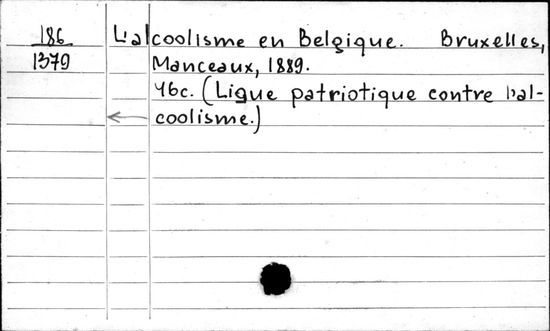 186 L'alcoolisme en Belgique. Bruxelles,
1379 Manceaux, 1889.
46c. (Ligue patriotique contre l'al-
coolisme.)